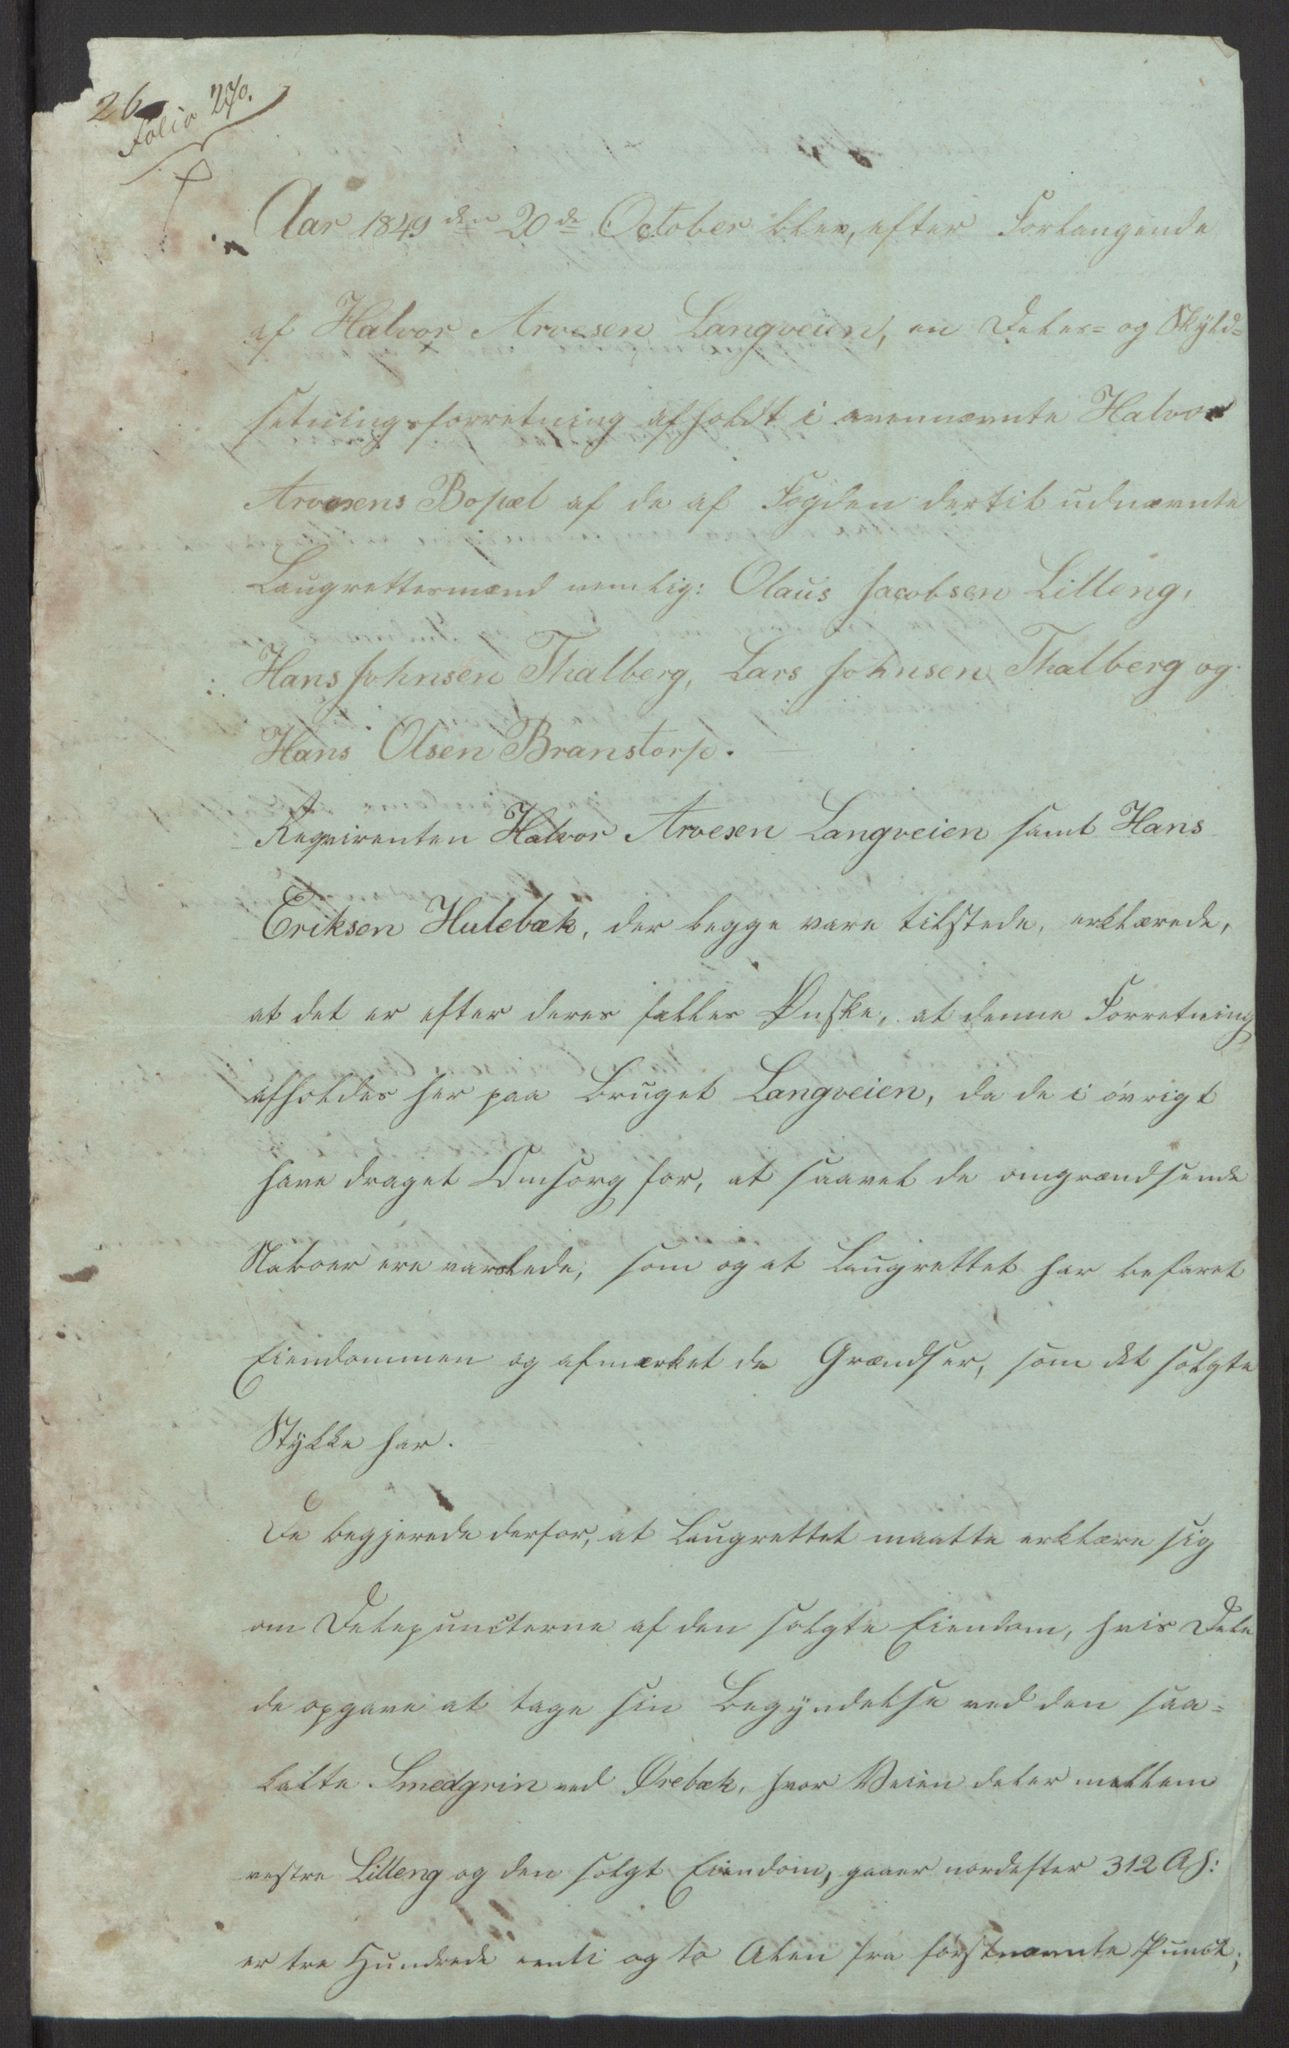 26
Folio 270.
Aar 1849 den 20de October blev, efter Forlangende
af Halvor Arvesen Langveien, en Deles- og Skyld-
setningsforretning afholdt i ovennævnte Halvor
Arvesens Bopæl af de af Fogden dertil udnævnte
Laugrettesmænd nemlig: Olaus Jacobsen Lilleng,
Hans Johnsen Thalberg, Lars Johnsen Thalberg og
Hans Olsen Branstorp.
Reqvirenten Halvor Arvesen Langveien samt Hans
Eriksen Hulebæk, der begge vare tilstede, erklærede,
at det er efter deres fælles Ønske, at denne Forretning
afholdes her paa Bruget Langveien, da de i øvrigt
have draget Omsorg for, at saavel de omgrændsende
Naboer ere varslede, som og at Laugrettet har befaret
Eiendommen og afmærket de Grændser, som det solgte
Stykke har.
De begjerede derfor, at Laugrettet maatte erklære sig
om Delepuncterne af den solgte Eiendom, hvis Dele
de opgave at tage sin Begyndelse ved den saa-
kalte Smedgrin ved Ørebæk, hvor Veien deler mellem
vestre Lilleng og den solgt Eiendom, gaaer nordefter 312 Al:
er tre Hundrede og to Alen fra førstnævnte Punct;